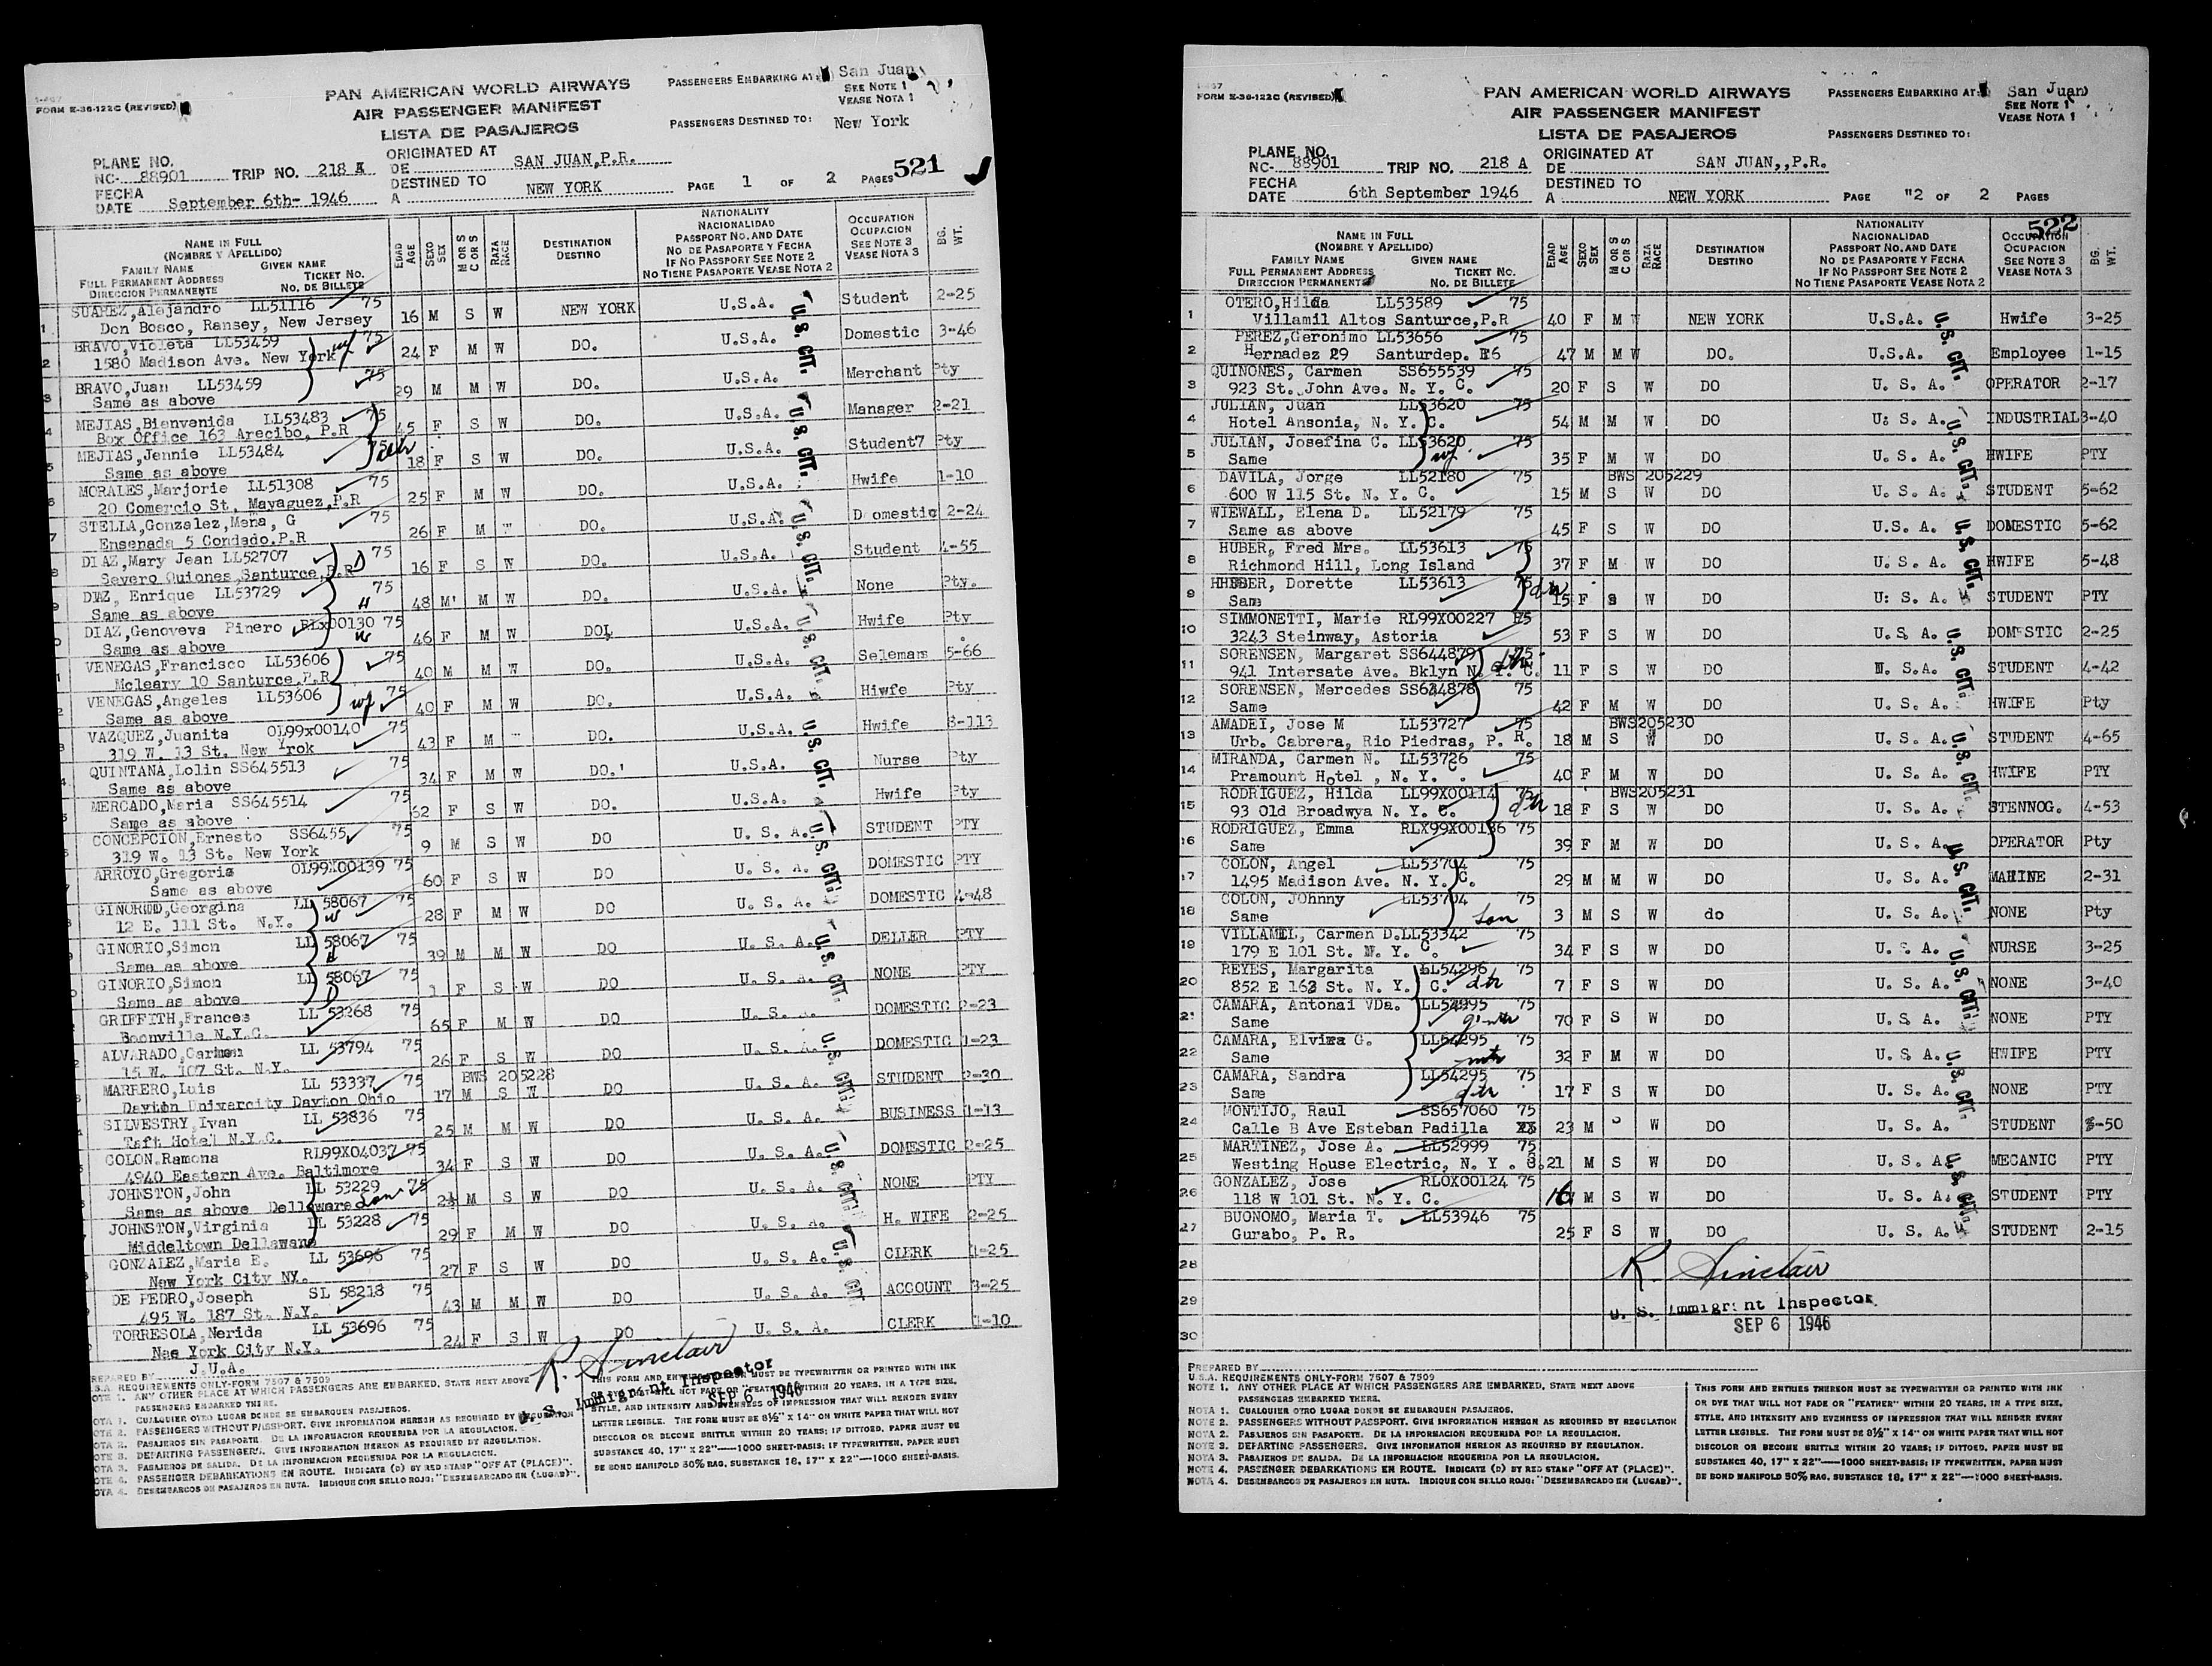 FORM E-36-122C (REVISED)
PAN AMERICAN WORLD AIRWAYS
AIR PASSENGER MANIFEST
LISTA DE PASAJEROS
PASSENGERS EMBARKING AT: San Juan
SEE NOTE 1
VEASE NOTA 1
PASSENGERS DESTINED TO: New York
PLANE NO.
NC- 88901 TRIP NO. 218 A
ORIGINATED AT
DE SAN JUAN,P.R.
FECHA
DATE September 6th- 1946
DESTINED TO
A NEW YORK
PAGE 1 OF 2 PAGES 521
NAME IN FULL
(NOMBRE Y APELLIDO)
FAMILY NAME GIVEN NAME
FULL PERMANENT ADDRESS TICKET NO.
DIRECCION PERMANENTE NO. DE BILLETE
EDAD AGE
SEXO SEX
M OR S
C OR S
RAZA RACE
DESTINATION
DESTINO
NATIONALITY
NACIONALIDAD
PASSPORT NO. AND DATE
NO. DE PASAPORTE Y FECHA
IF NO PASSPORT SEE NOTE 2
NO TIENE PASAPORTE VEASE NOTA 2
OCCUPATION
OCUPACION
SEE NOTE 3
VEASE NOTA 3
BG. WT.
SUAREZ,Alejandro LL51116 75
Don Bosco, Ransey, New Jersey 16 M S W NEW YORK U.S.A. Student 2-25
BRAVO,Violeta LL53459 75
1580 Madison Ave. New York wf 24 F M W DO. U.S.A. Domestic 3-46
BRAVO,Juan LL53459 75
Same as above 29 M M W DO. U.S.A. Merchant Pty
MEJIAS,Bienvenida LL53483 75
Box Office 163 Arecibo, P.R 45 F S W DO. U.S.A. Manager 2-21
MEJIAS,Jennie LL53484 75
Same as above 18 F S W DO. U.S.A. Student7 Pty
MORALES,Marjorie LL51308 75
20 Comercio St, Mayaguez,P.R 25 F M W DO. U.S.A. Hwife 1-10
STELLA,Gonzalez,Mena, G 75
Ensenada 5 Condado.P.R 26 F M DO. U.S.A. Domestic 2-24
DIAZ,Mary Jean LL52707 75
Severo Quiones,Santurce,P.R D 16 F S W DO. U.S.A. Student 4-55
DIAZ, Enrique LL53729 75
Same as above H 48 M' M W DO. U.S.A. None Pty.
DIAZ,Genoveva Pinero RLx00130 75
Same as above w 46 F M W DO. U.S.A. Hwife Pty
VENEGAS,Francisco LL53606 75
Mcleary 10 Santurce,P.R 40 M M W DO. U.S.A. Selemam 5-66
VENEGAS,Angeles LL53606 75
Same as above wf 40 F M W DO. U.S.A. Hiwfe Pty
VAZQUEZ,Juanita OL99x00140 75
319 W. 13 St. New Yrok 43 F M DO. U.S.A. Hwife 8-113
QUINTANA,Lolin SS645513 75
Same as above 34 F M W DO.' U.S.A. Nurse Pty
MERCADO,Maria SS645514 75
Same as above 62 F S W DO. U.S.A. Hwife Pty
CONCEPCION,Ernesto SS6455 75
319 W. 13 St. New York 9 M S W DO U. S. A. STUDENT PTY
ARROYO,Gregoria OL99X00139 75
Same as above 60 F S W DO U. S. A. DOMESTIC PTY
Georgina LL 58067 75
12 E. 111 St. N.Y. w 28 F M W DO U. S. A. DOMESTIC 4-48
GINORIO,Simon LL 58067 75
Same as above H 39 M M W DO U. S. A. DELLER PTY
GINORIO,Simon LL 58067 75
Same as above D 1 F S W DO U. S. A. NONE PTY
GRIFFITH,Frances LL 53268 75
Boonville N.Y.C. 65 F M W DO U. S. A. DOMESTIC 2-23
ALVARADO,Carmen LL 53794 75
15 W. 107 St. N.Y. 26 F S W DO U. S. A. DOMESTIC 1-23
MARRERO,Luis LL 53337 75 BWS 205228
Dayton Univercity Dayton Ohio 17 M S W DO U. S. A. STUDENT 2-30
SILVESTRY,Ivan LL 53836 75
Taft Hotel N.Y.C. 25 M M W DO U. S. A. BUSINESS 1-13
COLON,Ramona RL99X04037 75
4940 Eastern Ave. Baltimore 34 F S W DO U. S. A. DOMESTIC 2-25
JOHNSTON,John LL 53229 75
Same as above Dellaware Son M S W DO U. S. A. NONE PTY
JOHNSTON,Virginia LL 53228 75
Middeltown Dellawana 29 F M W DO U. S. A. H. WIFE 2-25
GONZALEZ,Maria E. LL 53696 75
New York City NY. 27 F S W DO U. S. A. CLERK 1-25
DE PEDRO,Joseph SL 58218 75
495 W. 187 St. N.Y. 43 M M W DO U. S. A. ACCOUNT 3-25
TORRESOLA,Nerida LL 53696 75
Nae York City N.Y. 24 F S W DO U. S. A. CLERK 1-10
U.S. CIT.
R. Sinclair
U. S. Immigrant Inspector
SEP 6 1946
PREPARED BY J.U.A.
U.S.A. REQUIREMENTS ONLY-FORM 7507 & 7509
NOTE 1. ANY OTHER PLACE AT WHICH PASSENGERS ARE EMBARKED, STATE NEXT ABOVE
PASSENGERS EMBARKED THERE.
NOTA 1. CUALQUIER OTRO LUGAR DONDE SE EMBARQUEN PASAJEROS.
NOTE 2. PASSENGERS WITHOUT PASSPORT. GIVE INFORMATION HEREON AS REQUIRED BY REGULATION
NOTA 2. PASAJEROS SIN PASAPORTE. DE LA INFORMACION REQUERIDA POR LA REGULACION.
NOTE 3. DEPARTING PASSENGERS. GIVE INFORMATION HEREON AS REQUIRED BY REGULATION.
NOTA 3. PASAJEROS DE SALIDA. DE LA INFORMACION REQUERIDA POR LA REGULACION.
NOTE 4. PASSENGER DEBARKATIONS EN ROUTE. INDICATE (D) BY RED STAMP "OFF AT (PLACE)".
NOTA 4. DESEMBARCOS DE PASAJEROS EN RUTA. INDIQUE CON SELLO ROJO: "DESEMBARCADO EN (LUGAR)".
THIS FORM AND ENTRIES THEREON MUST BE TYPEWRITTEN OR PRINTED WITH INK
OR DYE THAT WILL NOT FADE OR "FEATHER" WITHIN 20 YEARS, IN A TYPE SIZE,
STYLE, AND INTENSITY AND EVENNESS OF IMPRESSION THAT WILL RENDER EVERY
LETTER LEGIBLE. THE FORM MUST BE 8½" X 14" ON WHITE PAPER THAT WILL NOT
DISCOLOR OR BECOME BRITTLE WITHIN 20 YEARS; IF DITTOED, PAPER MUST BE
SUBSTANCE 40, 17" X 22"—1000 SHEET-BASIS; IF TYPEWRITTEN, PAPER MUST
BE BOND MANIFOLD 50% RAG, SUBSTANCE 18, 17" X 22"—1000 SHEET-BASIS.
FORM E-36-122C (REVISED)
PAN AMERICAN WORLD AIRWAYS
AIR PASSENGER MANIFEST
LISTA DE PASAJEROS
PASSENGERS EMBARKING AT: San Juan
SEE NOTE 1
VEASE NOTA 1
PASSENGERS DESTINED TO:
PLANE NO.
NC- 88901 TRIP NO. 218 A
ORIGINATED AT
DE SAN JUAN,,P.R.
FECHA
DATE 6th September 1946
DESTINED TO
A NEW YORK
PAGE "2 OF 2 PAGES
522
NAME IN FULL
(NOMBRE Y APELLIDO)
FAMILY NAME GIVEN NAME
FULL PERMANENT ADDRESS TICKET NO.
DIRECCION PERMANENTE NO. DE BILLETE
EDAD AGE
SEXO SEX
M OR S
C OR S
RAZA RACE
DESTINATION
DESTINO
NATIONALITY
NACIONALIDAD
PASSPORT NO. AND DATE
NO. DE PASAPORTE Y FECHA
IF NO PASSPORT SEE NOTE 2
NO TIENE PASAPORTE VEASE NOTA 2
OCCUPATION
OCUPACION
SEE NOTE 3
VEASE NOTA 3
BG. WT.
OTERO,Hilda LL53589 75
1 Villamil Altos Santurce,P.R 40 F M W NEW YORK U.S.A. Hwife 3-25
PEREZ,Geronimo LL53656 75
2 Hernadez 29 Santurdep. E6 47 M M W DO. U.S.A. Employee 1-15
QUINONES, Carmen SS655539 75
3 923 St. John Ave. N. Y. C. 20 F S W DO U. S. A. OPERATOR 2-17
JULIAN, Juan LL53620 75
4 Hotel Ansonia, N. Y. C. 54 M M W DO U: S. A. INDUSTRIAL 3-40
JULIAN, Josefina C. LL53620 75
5 Same wf. 35 F M W DO U. S. A. HWIFE PTY
DAVILA, Jorge LL52180 75 BWS 205229
6 600 W 115 St. N. Y. C. 15 M S W DO U. S. A. STUDENT 5-62
WIEWALL, Elena D. LL52179 75
7 Same as above 45 F S W DO U.S. A. DOMESTIC 5-62
HUBER, Fred Mrs. LL53613 75
8 Richmond Hill, Long Island 37 F M W DO U. S. A. HWIFE 5-48
Dorette LL53613 75
9 Same 15 F S W DO U: S. A. STUDENT PTY
SIMMONETTI, Marie RL99X00227 75
10 3243 Steinway, Astoria 53 F S W DO U. S. A. DOMESTIC 2-25
SORENSEN, Margaret SS644879 75
11 941 Intersate Ave. Bklyn N. Y. C. 11 F S W DO U. S.A. STUDENT 4-42
SORENSEN, Mercedes SS644878 75
12 Same 42 F M W DO U. S. A. HWIFE Pty
AMADEI, Jose M LL53727 75 BWS205230
13 Urb. Cabrera, Rio Piedras, P. R. 18 M S W DO U. S. A. STUDENT 4-65
MIRANDA, Carmen N. LL53726 75
14 Pramount Hotel , N. Y. C. 40 F M W DO U. S. A. HWIFE PTY
RODRIGUEZ, Hilda LL99X00114 75 BWS205231
15 93 Old Broadwya N. Y. C. 18 F S W DO U. S. A. STENNOG. 4-53
RODRIGUEZ, Emma RLX99X00136 75
16 Same 39 F M W DO U. S. A. OPERATOR Pty
COLON, Angel LL53704 75
17 1495 Madison Ave. N. Y. C. 29 M M W DO U. S. A. MARINE 2-31
COLON, JOhnny LL53704 75
18 Same son 3 M S W do U. S. A. NONE Pty
VILLAMIL, Carmen D.LL53342 75
19 179 E 101 St. N. Y. C. 34 F S W DO U. S. A. NURSE 3-25
REYES, Margarita LL54296 75
20 852 E 163 St. N. Y. C. 7 F S W DO U. S. A. NONE 3-40
CAMARA, Antonai VDa. LL54295 75
21 Same 70 F S W DO U. S. A. NONE PTY
CAMARA, Elvira G. LL54295 75
22 Same 32 F M W DO U. S. A. HWIFE PTY
CAMARA, Sandra LL54295 75
23 Same 17 F S W DO U. S. A. NONE PTY
MONTIJO, Raul SS657060 75
24 Calle B Ave Esteban Padilla 23 M W DO U. S. A. STUDENT 3-50
MARTINEZ, Jose A. LL52999 75
25 Westing House Electric, N. Y . C. 21 M S W DO U. S. A. MECANIC PTY
GONZALEZ, Jose RL0X00124 75
26 118 W 101 St. N. Y. C. 16 M S W DO U. S. A. STUDENT PTY
BUONOMO, Maria T. LL53946 75
27 Gurabo, P. R. 25 F S W DO U. S. A. STUDENT 2-15
U.S. CIT.
28
29
30
R. Sinclair
U. S. Immigrant Inspector
SEP 6 1946
PREPARED BY
U.S.A. REQUIREMENTS ONLY-FORM 7507 & 7509
NOTE 1. ANY OTHER PLACE AT WHICH PASSENGERS ARE EMBARKED, STATE NEXT ABOVE
PASSENGERS EMBARKED THERE.
NOTA 1. CUALQUIER OTRO LUGAR DONDE SE EMBARQUEN PASAJEROS.
NOTE 2. PASSENGERS WITHOUT PASSPORT. GIVE INFORMATION HEREON AS REQUIRED BY REGULATION
NOTA 2. PASAJEROS SIN PASAPORTE. DE LA INFORMACION REQUERIDA POR LA REGULACION.
NOTE 3. DEPARTING PASSENGERS. GIVE INFORMATION HEREON AS REQUIRED BY REGULATION.
NOTA 3. PASAJEROS DE SALIDA. DE LA INFORMACION REQUERIDA POR LA REGULACION.
NOTE 4. PASSENGER DEBARKATIONS EN ROUTE. INDICATE (D) BY RED STAMP "OFF AT (PLACE)".
NOTA 4. DESEMBARCOS DE PASAJEROS EN RUTA. INDIQUE CON SELLO ROJO: "DESEMBARCADO EN (LUGAR)".
THIS FORM AND ENTRIES THEREON MUST BE TYPEWRITTEN OR PRINTED WITH INK
OR DYE THAT WILL NOT FADE OR "FEATHER" WITHIN 20 YEARS, IN A TYPE SIZE,
STYLE, AND INTENSITY AND EVENNESS OF IMPRESSION THAT WILL RENDER EVERY
LETTER LEGIBLE. THE FORM MUST BE 8½" X 14" ON WHITE PAPER THAT WILL NOT
DISCOLOR OR BECOME BRITTLE WITHIN 20 YEARS; IF DITTOED, PAPER MUST BE
SUBSTANCE 40, 17" X 22"—1000 SHEET-BASIS; IF TYPEWRITTEN, PAPER MUST
BE BOND MANIFOLD 50% RAG, SUBSTANCE 18, 17" X 22"—1000 SHEET-BASIS.